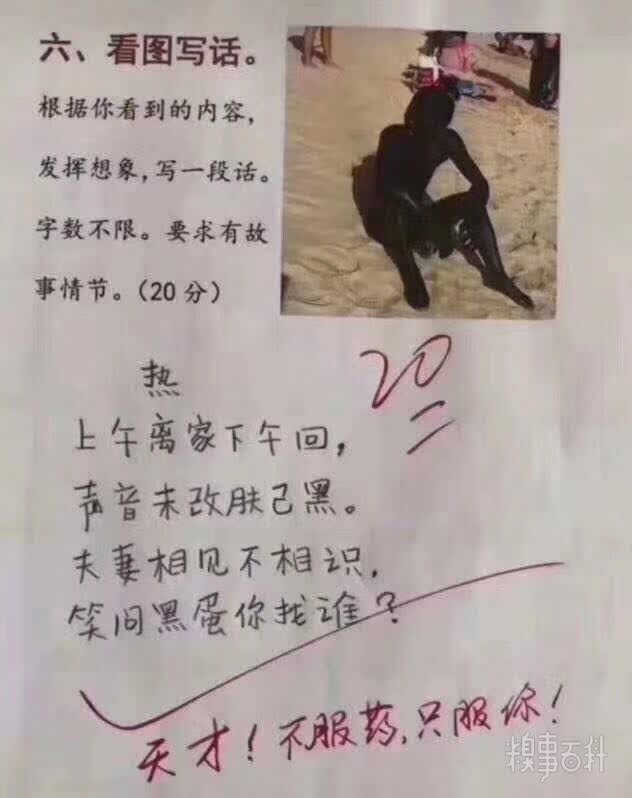 六、看图写话。
根据你看到的内容，
发挥想象，写一段话。
字数不限。要求有故
事情节。（20分）
热
20
上午离家下午回，
声音未改肤已黑。
夫妻相见不相识，
笑问黑蛋你找谁？
天才！不服药，只服你！
糗事百科